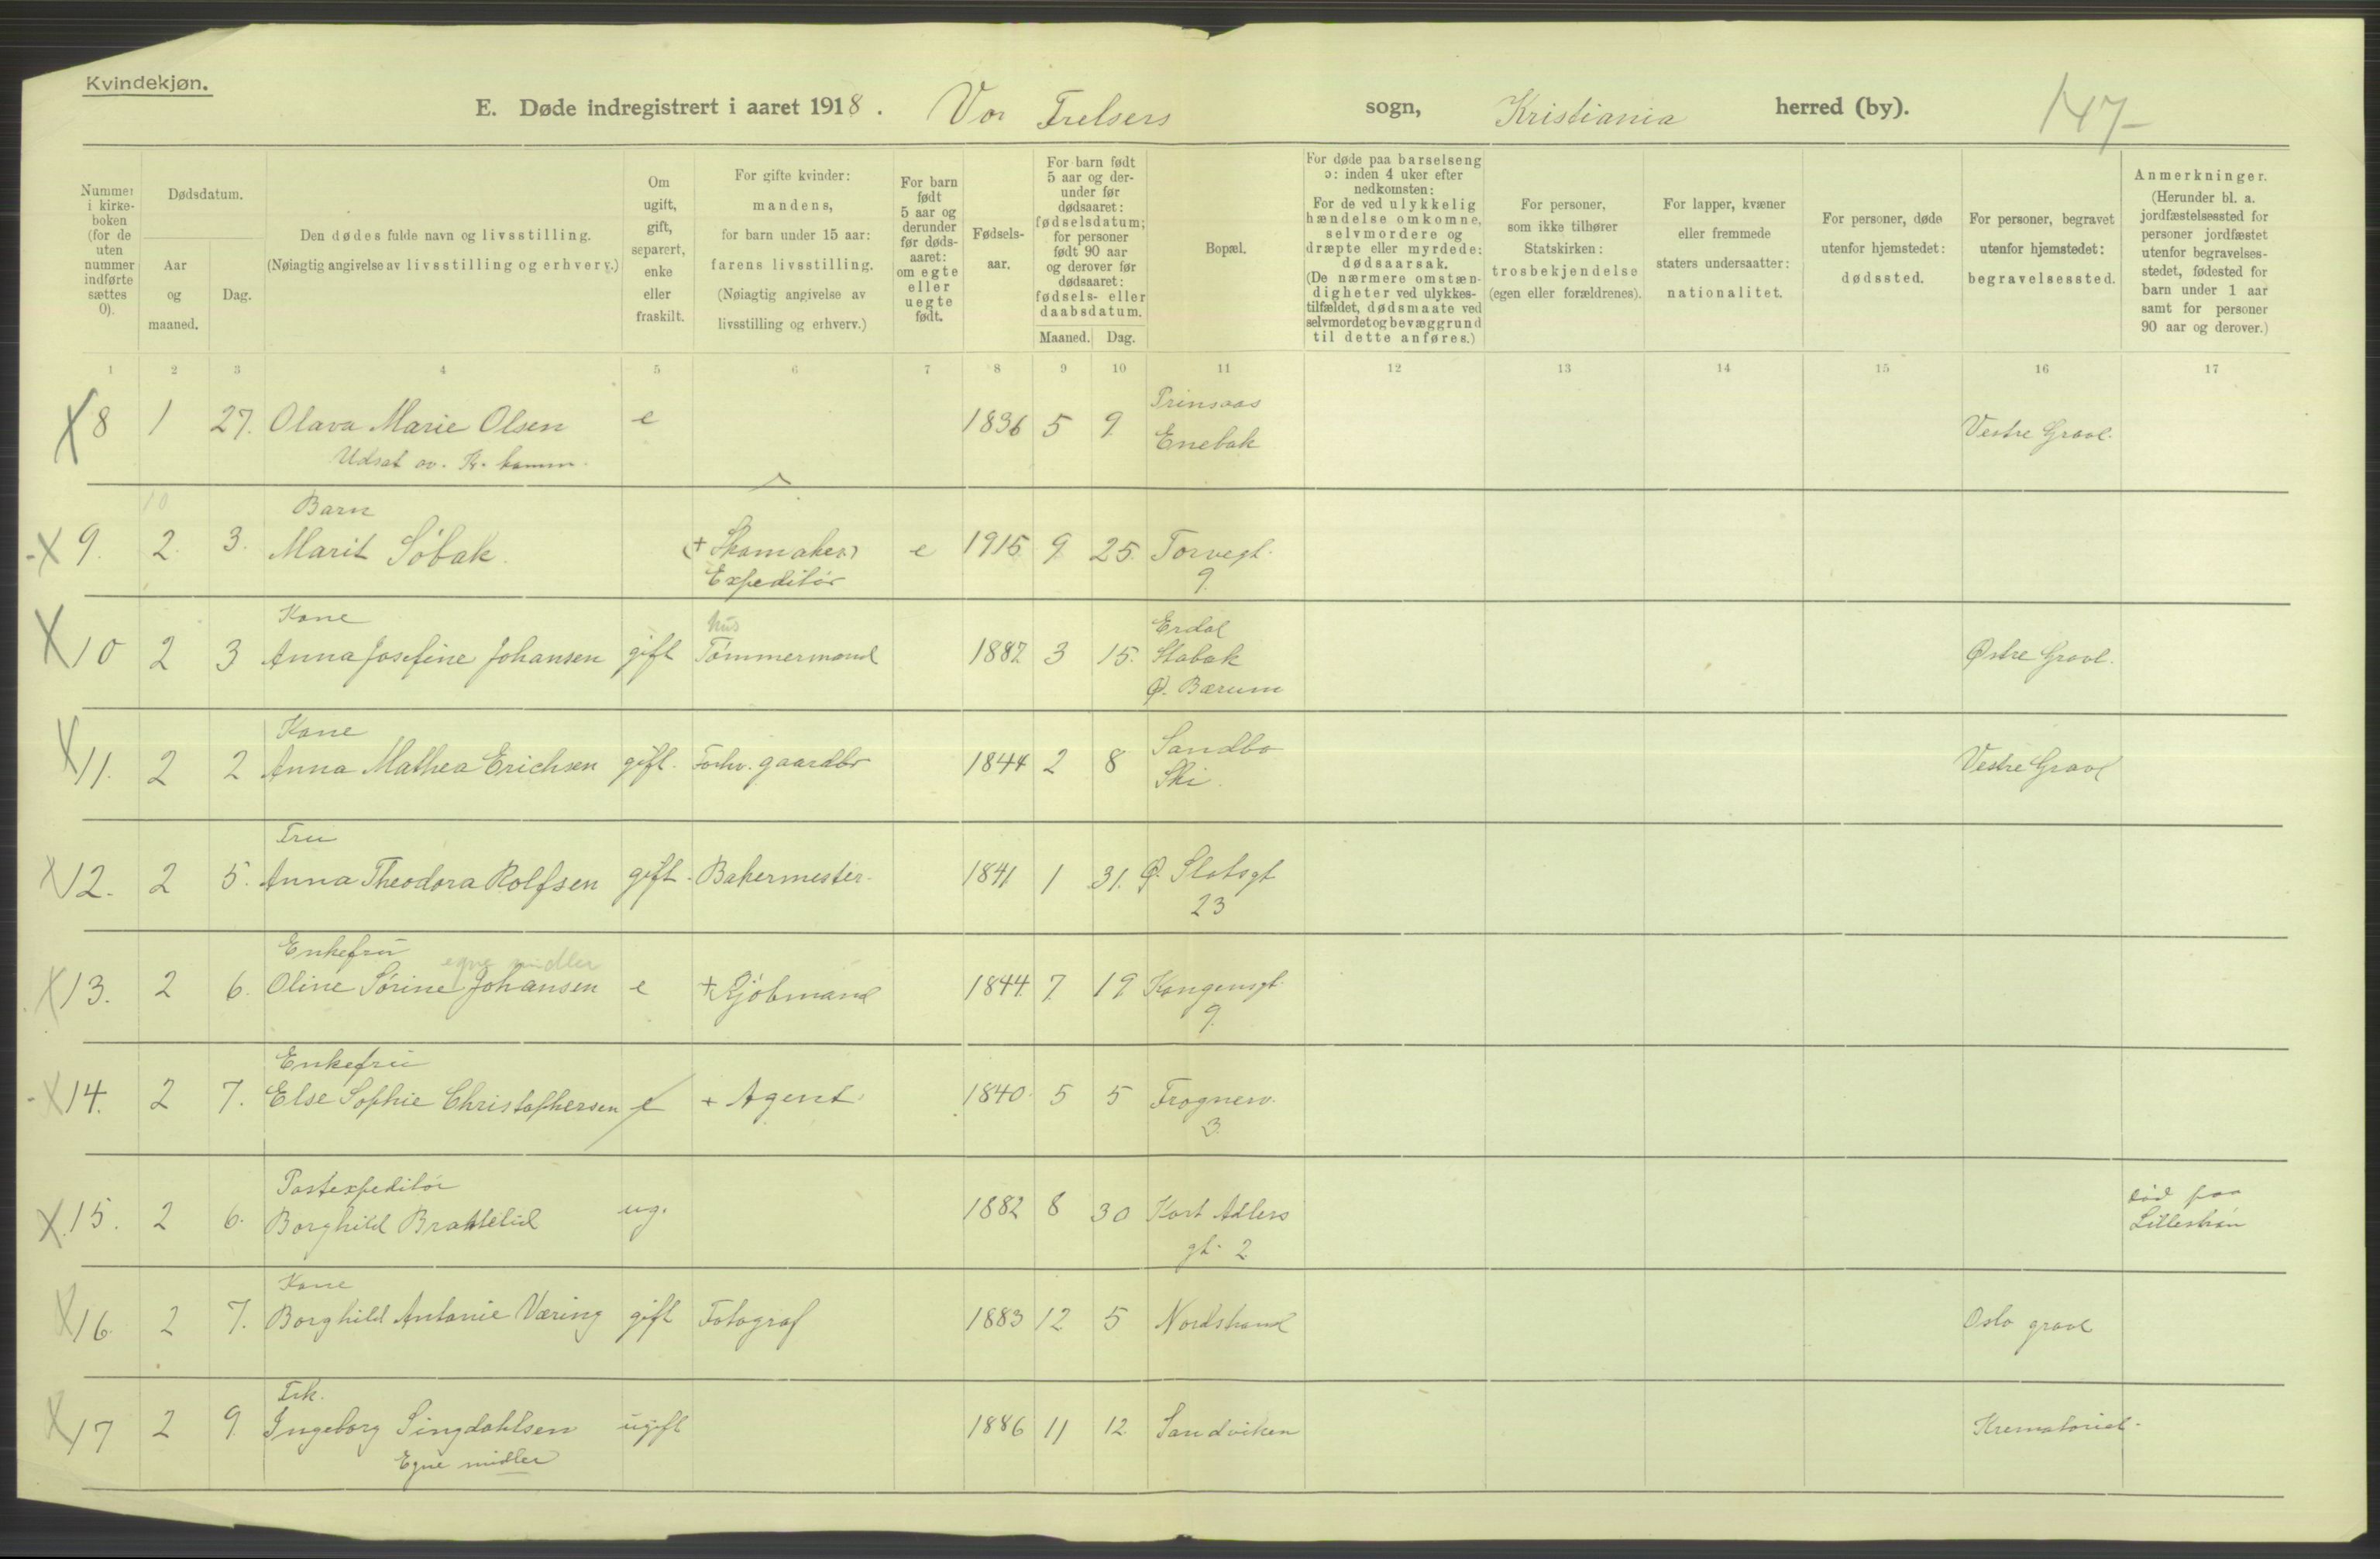 Kvindekjøn.
E. Døde indregistrert i aaret 1918. Vor Frelsers sogn, Kristiania herred (by). 147
Nummer i kirke-boken (for de uten nummer indførte sættes 0).
Dødsdatum.
Aar og maaned.
Dag.
Den dødes fulde navn og livsstilling.
(Nøiagtig angivelse av livsstilling og erhverv.)
Om ugift, gift, separert, enke eller fraskilt.
For gifte kvinder: mandens, for barn under 15 aar: farens livsstilling. (Nøiagtig angivelse av livsstilling og erhverv.)
For barn født 5 aar og derunder før døds-aaret: om egte eller uegte født.
Fødsels-aar.
For barn født 5 aar og der-under før dødsaaret: fødselsdatum; for personer født 90 aar og derover før dødsaaret: fødsels- eller daabsdatum.
Maaned. Dag.
Bopæl.
For døde paa barselseng ɔ: inden 4 uker efter nedkomsten: For de ved ulykkelig hændelse omkomne, selvmordere og dræpte eller myrdede: dødsaarsak. (De nærmere omstæn-digheter ved ulykkes-tilfældet, dødsmaate ved selvmordet og bevæggrund til dette anføres.)
For personer, som ikke tilhører Statskirken: trosbekjendelse (egen eller forældrenes).
For lapper, kvæner eller fremmede staters undersaatter: nationalitet.
For personer, døde utenfor hjemstedet: dødssted.
For personer, begravet utenfor hjemstedet: begravelsessted.
Anmerkninger. (Herunder bl. a. jordfæstelsessted for personer jordfæstet utenfor begravelses-stedet, fødested for barn under 1 aar samt for personer 90 aar og derover.)
1 2 3 4 5 6 7 8 9 10 11 12 13 14 15 16 17
Prinsaas
X 8 1 27. Olava Marie Olsen e 1836 5 9 Enebak Vestre Gravl.
Udsat av. Kr. komm.
10 Barn
X 9. 2. 3. Marit Söbak. (+ Skomaker) e 1915 9. 25. Torvegt.
Expeditör 9.
Kone hus Erdal
X 10 2 3 Anna Josefine Johansen gift Tömmermand 1882 3 15. Stabæk Østre Gravl.
Ø. Bærum
Kone Sandbo
X 11. 2 2 Anna Mathea Erichsen gift. Forhv. gaardbr 1844 2 8 Ski. Vestre Gravl
Fru
X 12. 2 5. Anna Theodora Rolfsen gift. Bakermester. 1841 1 31. Ø. Slotsgt
23
Enkefru egne midler
X 13. 2 6. Oline Sörine Johansen e + Kjöbmand 1844. 7. 19 Kongensgt.
9.
Enkefru
X 14. 2 7. Else Sophie Christophersen e + Agent 1840. 5 5 Frognerv.
3.
Postexpeditör död paa
X 15. 2 6. Borghild Brattelid ug. 1882 8 30 Kort Adlers Lilleström
gt. 2
Kone
X 16. 2 7. Borghild Antonie Væring gift Fotograf 1883 12 5 Nordstrand Oslo gravl
Frk.
X 17 2 9. Ingeborg Singdahlsen ugift 1886 11 12. Sandviken Krematoriet.
Egne midler